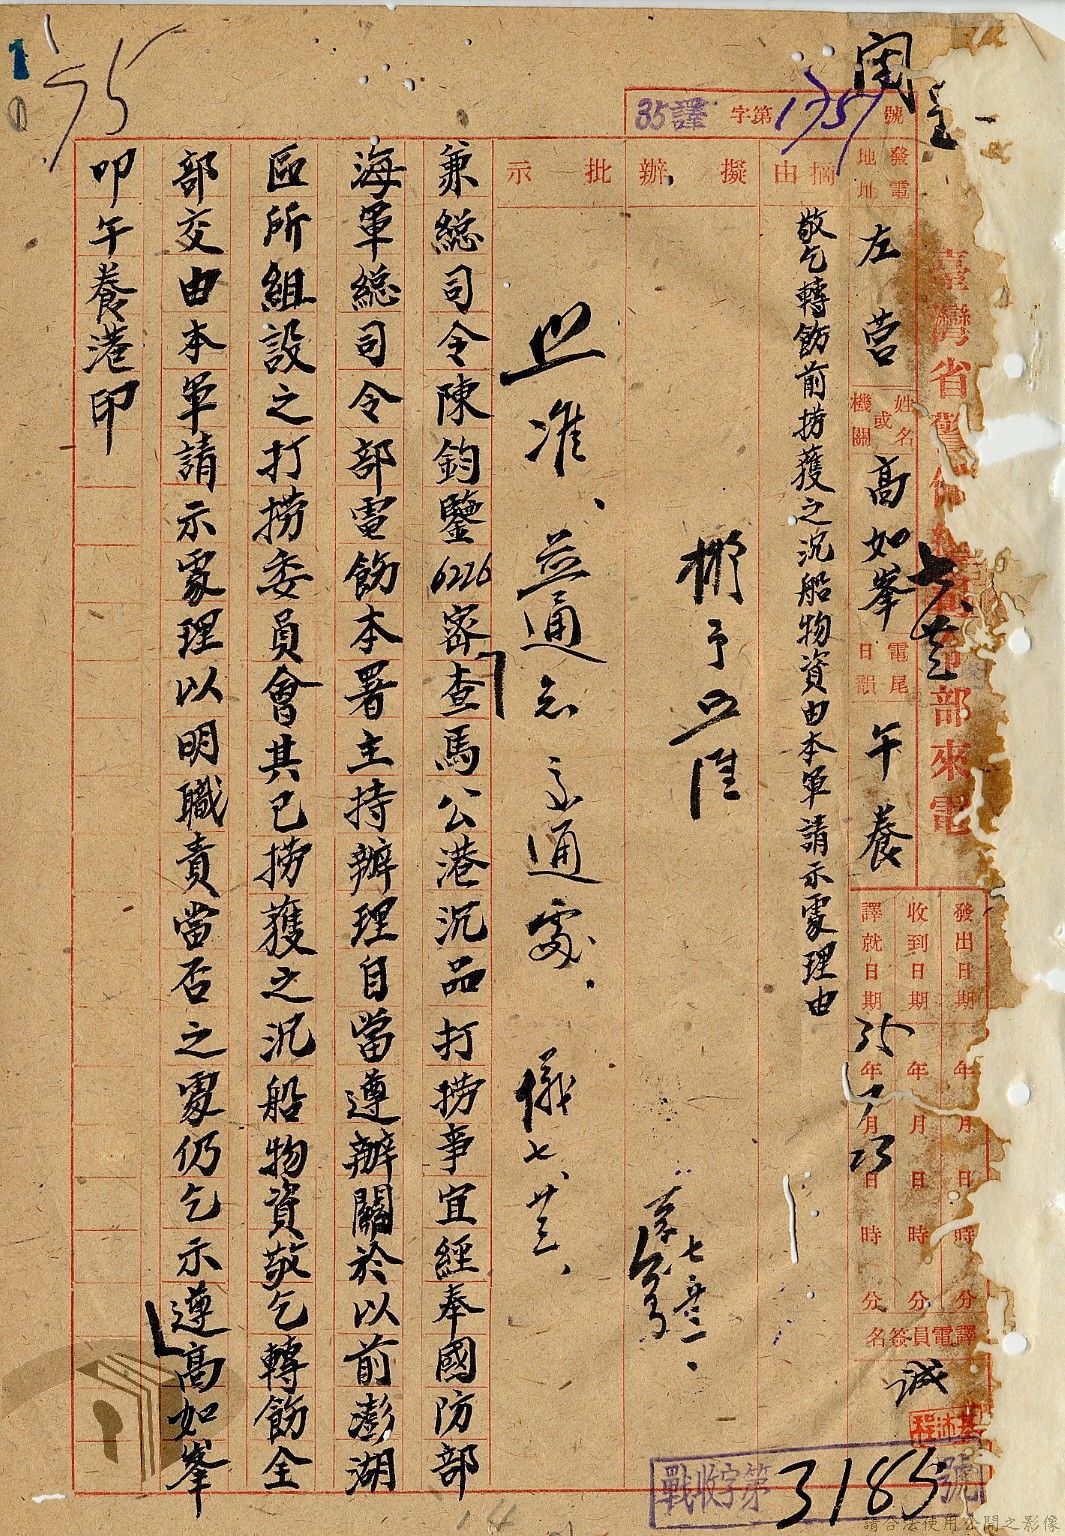 臺灣省警備總司令部來電
35譯字第1757號
發電地址
左營
姓名或機關
高如峯
電尾日韻
午養
發出日期 年 月 日 時 分
收到日期 年 月 日 時 分
譯就日期 35年7月23日 時 分
譯電員簽名
誠
摘由
敬乞轉飭前撈獲之沉船物資由本軍請示處理由
擬辦
擬予照准
批示
照准、並通知交通處.
儀七、廿三、
兼總司令陳鈞鑒6226密查馬公港沉品打撈事宜經奉國防部
海軍總司令部電飭本署主持辦理自當遵辦關於以前澎湖
區所組設之打撈委員會其已撈獲之沉船物資敬乞轉飭全
部交由本軍請示處理以明職責當否之處仍乞示遵高如峯
叩午養港印
戰收字第3185號
75
1
請合法使用公開之影像